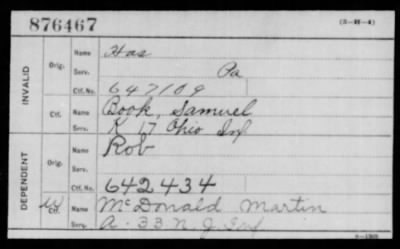 876467 (3-H-4)
INVALID
Orig. Name Has
Serv. Pa
Ctf. No. 647109
Ctf. Name Book, Samuel
Serv. K 17 Ohio Inf
DEPENDENT
Orig. Name Rob
Serv.
Ctf. No. 642434
Ctf. Name McDonald Martin
Serv. A. 33 N. J. Inf